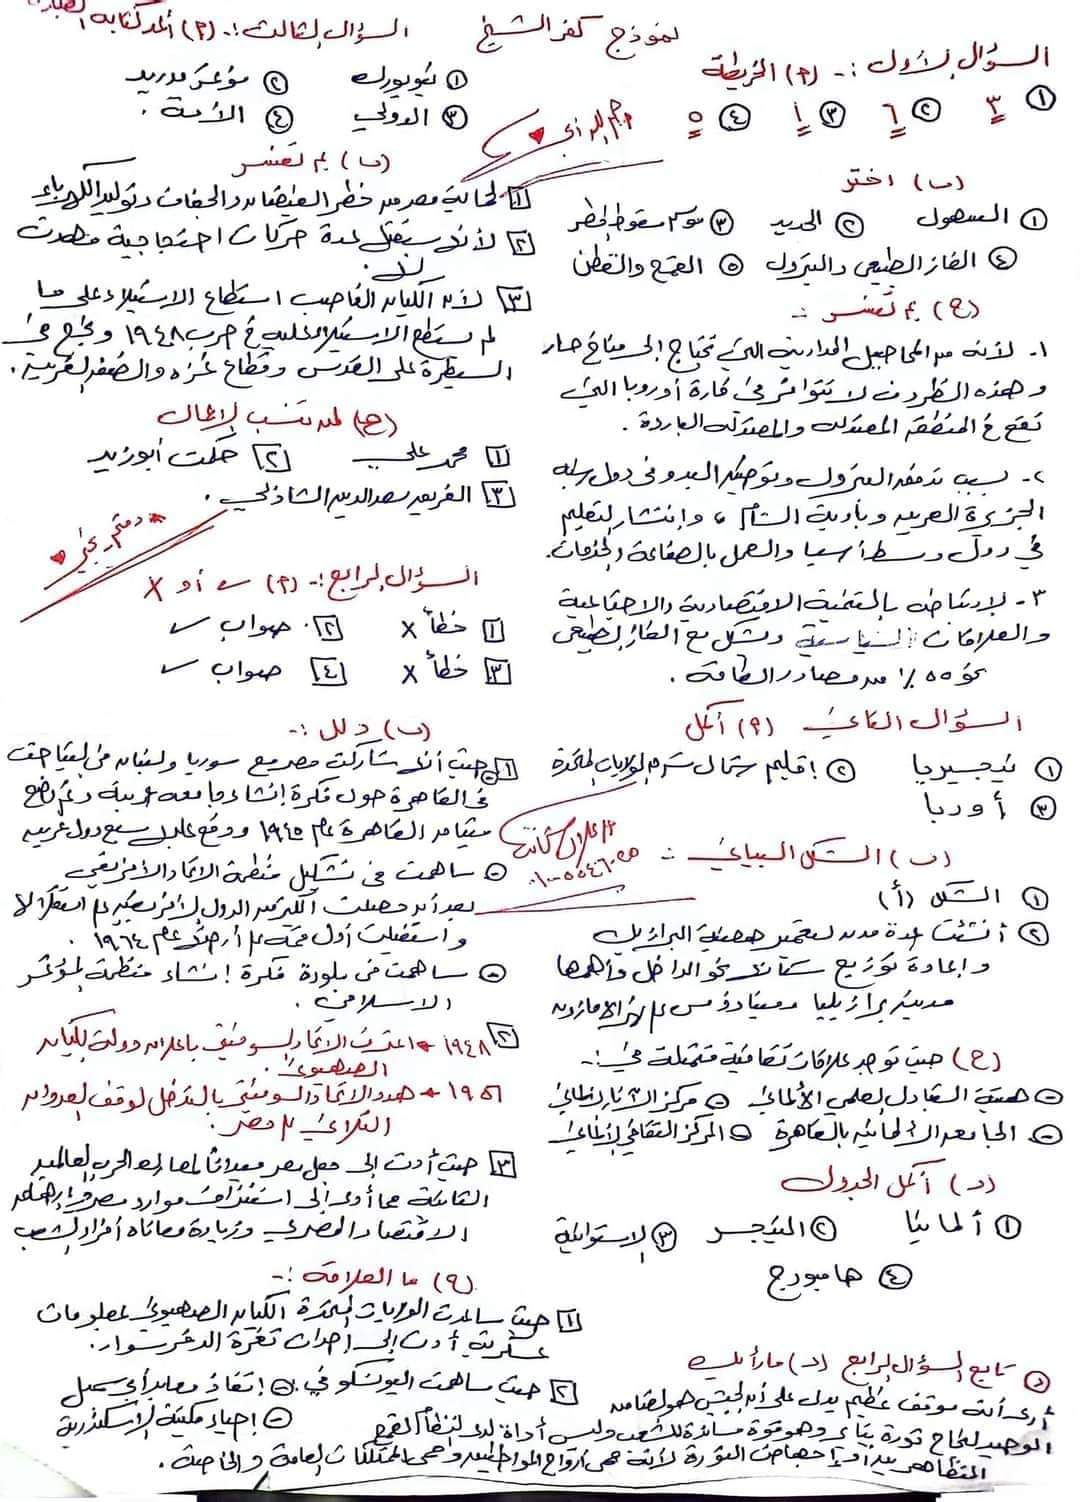 نموذج كفر الشيخ
السؤال الأول :- (٢) الخريطة
١ ٣ ٢ ٦ ٣ أ ٤ ٥
(ب) اختر
١ السهول ٢ الحديد ٣ موسم سقوط المطر
٤ الغاز الطبيعي والبترول ٥ القمح والقطن
(ج) بم تفسر :-
١- لأنه من المحاصيل المدارية التي تحتاج إلى مناخ حار
وهذه الظروف لا تتوافر في قارة أوروبا التي
تقع في المنطقة المعتدلة والمعتدلة الباردة .
٢- بسبب تدفق البترول وتوطين البدو في دول شبه
الجزيرة العربية وبادية الشام ، وانتشار التعليم
في دول وسط أسيا والعمل بالصناعة والخدمات.
٣- لارتباطه بالتنمية الاقتصادية والاجتماعية
والعلاقات السياسية ويشكل مع الغاز الطبيعي
نحو ٥٥٪ من مصادر الطاقة .
السؤال الثاني (٩) أكمل
١ نيجيريا ٢ إقليم شمال شرق الولايات المتحدة
٣ أوربا
(ب) الشكل البياني :-
١ الشكل (أ)
٢ أنشئت عدة مدن لتعمير هضبة البرازيل
وإعادة توزيع سكان نحو الداخل وأهمها
مدينة برازيليا وميناء ماناوس على نهر الأمازون
(ج) حيث توجد علاقات ثقافية متمثلة في :-
- هيئة التبادل العلمي الألماني - مركز الآثار الإيطالي
- الجامعة الألمانية بالقاهرة - المركز الثقافي الألماني
(د) أكمل الجدول
١ ألمانيا ٢ النيجر ٣ الاستوائية
٤ هامبورج
السؤال الثالث :- (٢) أكمل كتابة
١ نيويورك ٢ مؤتمر مدريد
٣ الدولي ٤ الأمة .
(ب) بم تفسر
١ لحماية مصر من خطر الفيضان والجفاف وتوليد الكهرباء
٢ لأنه سيقتل عدة حركات احتجاجية مهدت
له.
٣ لأن الكيان الغاصب استطاع الاستيلاء على ما
لم يستطع الاستيلاء عليه في حرب ١٩٤٨ ونجح في
السيطرة على القدس وقطاع غزة والضفة الغربية .
(ج) لمن تنسب الأعمال
١ محمد علي ٢ حكمت أبو زيد
٣ الفريق سعد الدين الشاذلي .
السؤال الرابع :- (٢) ✓ أو X
١ خطأ X ٢ صواب ✓
٣ خطأ X ٤ صواب ✓
(ب) دلل :-
١ - حيث أنها شاركت مصر مع سوريا ولبنان في مباحثات
في القاهرة حول فكرة إنشاء جامعة عربية وتم وضع
ميثاقها في القاهرة عام ١٩٤٥ ووقع عليه سبع دول عربية
- ساهمت في تشكيل منظمة الاتحاد الأفريقي
بعد أن حصلت الكثير من الدول الأفريقية على استقلالها
واستضافت أول قمة على أرضها عام ١٩٦٤ .
- ساهمت في بلورة فكرة إنشاء منظمة المؤتمر
الاسلامي .
٢ ١٩٤٨ * اعترف الاتحاد السوفيتي بإعلان دولة الكيان
الصهيوني .
١٩٥٦ * هدد الاتحاد السوفيتي بالتدخل لوقف العدوان
الثلاثي على مصر .
٣ حيث أدت إلى جعل مصر ميداناً لمعارك الحرب العالمية
الثانية مما أدى إلى استنزاف موارد مصر وإرهاق
الاقتصاد المصري وزيادة معاناة أفراد الشعب
(ج) ما العلاقة :-
١ حيث ساعدت الولايات المتحدة الكيان الصهيوني بمعلومات
عسكرية أدت إلى إحداث ثغرة الدفرسوار .
٢ حيث ساهمت اليونسكو في - إنقاذ معابد أبي سمبل
- إحياء مكتبة الإسكندرية
تابع السؤال الرابع (د) ما رأيك
أرى أنه موقف عظيم يدل على أن الجيش هو الضامن
الوحيد لنجاح ثورة يناير وهو قوة مساندة للشعب وليس أداة لدى النظام لقمع
المتظاهرين أو إجهاض الثورة لأنه حمى أرواح المواطنين وحمى الممتلكات العامة والخاصة .